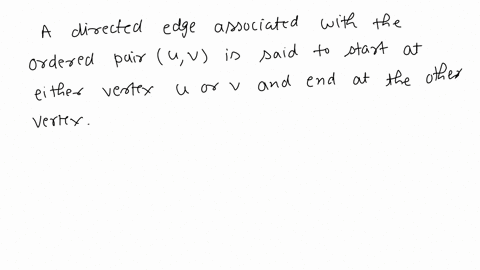 A directed edge associated with the
ordered pair (u,v) is said to start at
either vertex u or v and end at the other
vertex.